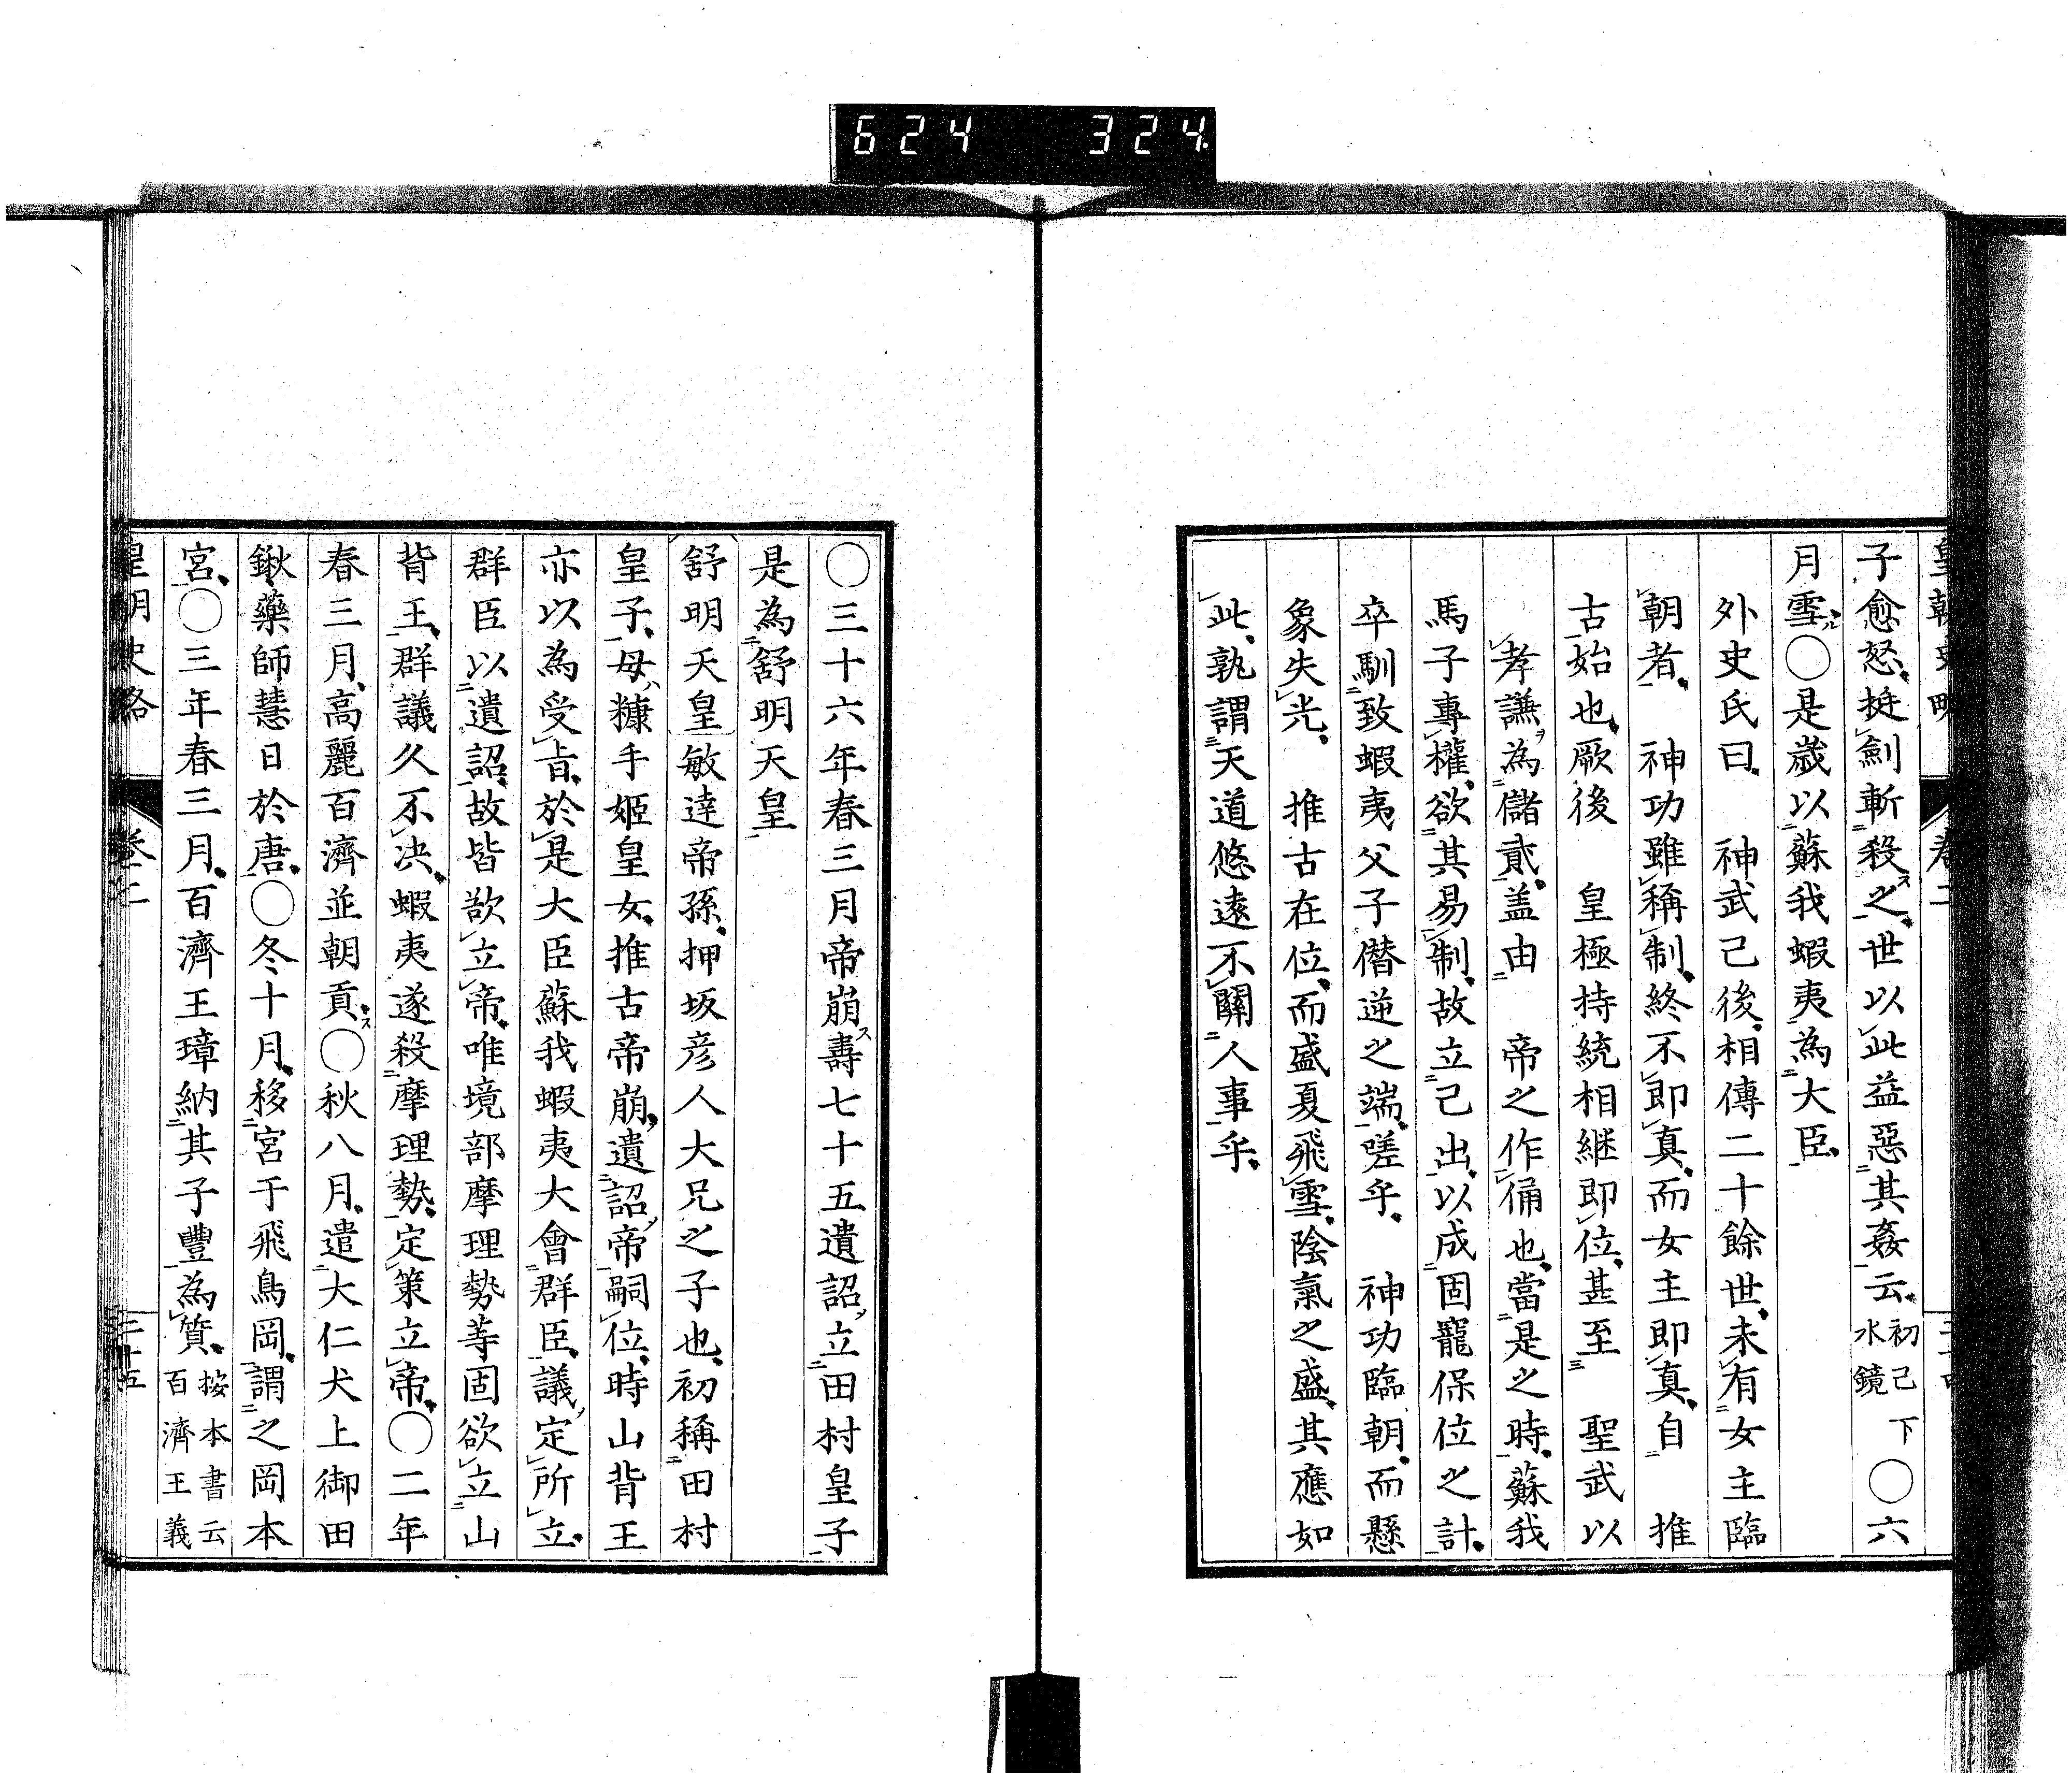 624 324
皇朝史略 卷二
子愈怒、挺劍斬殺之、世以此益惡其姦云、初己下水鏡〇六
月雪、〇是歲以蘇我蝦夷為大臣、
外史氏曰、神武己後、相傳二十餘世、未有女主臨
朝者、神功雖稱制、終不即真、而女主即真、自 推
古始也、厥後 皇極持統相継即位、甚至 聖武以
孝謙為儲貳、盖由 帝之作俑也、當是之時、蘇我
馬子專權、欲其易制、故立己出、以成固寵保位之計、
卒馴致蝦夷父子僭逆之端、嗟乎、神功臨朝、而懸
象失光、推古在位、而盛夏飛雪、陰氣之盛、其應如
此、孰謂天道悠遠不關人事乎、
〇三十六年春三月帝崩壽七十五遺詔立田村皇子
是為舒明天皇
舒明天皇敏達帝孫、押坂彦人大兄之子也、初稱田村
皇子、母糠手姬皇女、推古帝崩、遺詔帝嗣位、時山背王
亦以為受旨、於是大臣蘇我蝦夷大會群臣、議定所立、
群臣以遺詔、故皆欲立帝、唯境部摩理勢等固欲立山
背王、群議久不决、蝦夷遂殺摩理勢、定策立帝、〇二年
春三月、高麗百濟並朝貢、〇秋八月、遣大仁犬上御田
鍬藥師慧日於唐、〇冬十月、移宮于飛鳥岡、謂之岡本
宮、〇三年春三月、百濟王璋納其子豐為質、按本書云百濟王義
皇朝史略 卷二 三十五